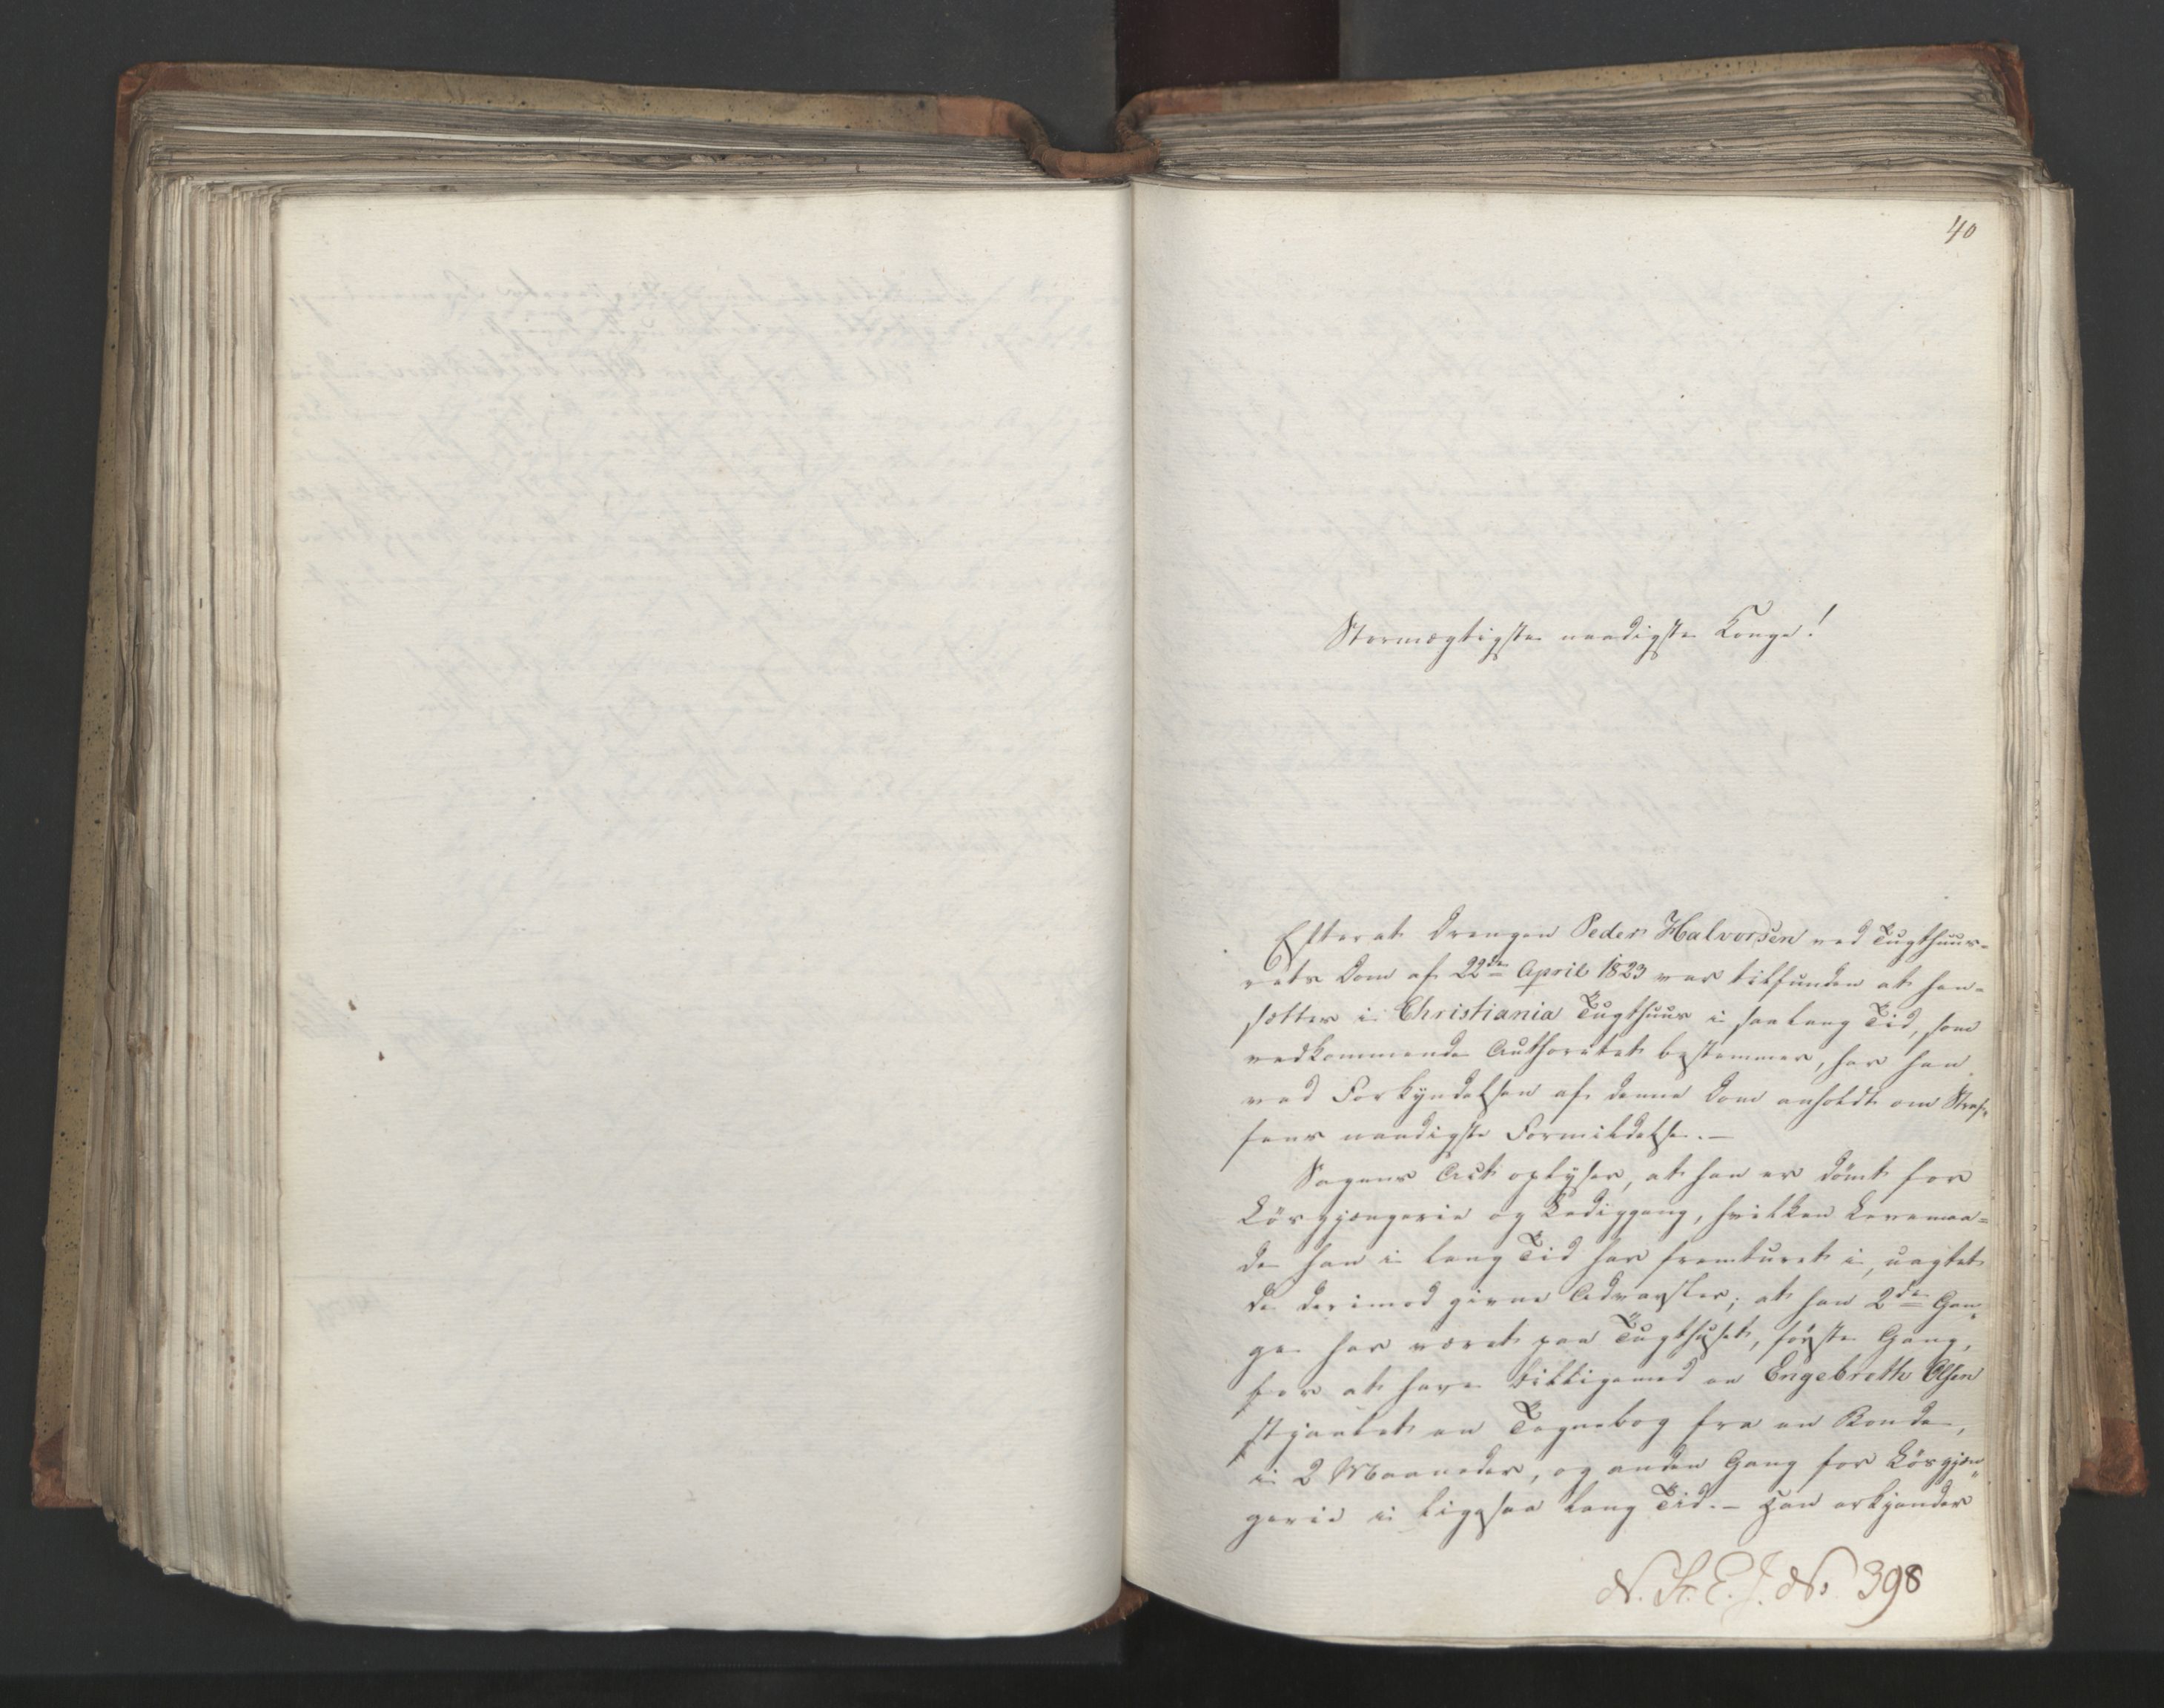 40
Stormægtigste naadigste Konge!
Efterat Drengen Peder Halvorsen ved Tugthuus-
rets Dom af 22de April 1823 var tilfunden at hen-
sættes i Christiania Tugthuus i saalang Tid, som
vedkommende Authoritet bestemmer, har han
ved Forkyndelsen af denne Dom anholdt om Straf-
fens naadigste Formildelse. —
Sagens Act oplyser, at han er dömt for
Lösgjængerie og Lediggang, hvilken Levemaa-
de han i lang Tid har fremturet i, uagtet
de derimod givne Advarsler; at han 2de Gan-
ge har været paa Tugthuset, förste Gang,
for at have tilligemed en Engebreth Olsen
stjaalet en Tegnebog fra en Bonde,
i 2 Maaneder, og anden Gang for Lösgjæn-
gerie i ligesaa lang Tid. — Han erkjender
N. St. E. J. No 398